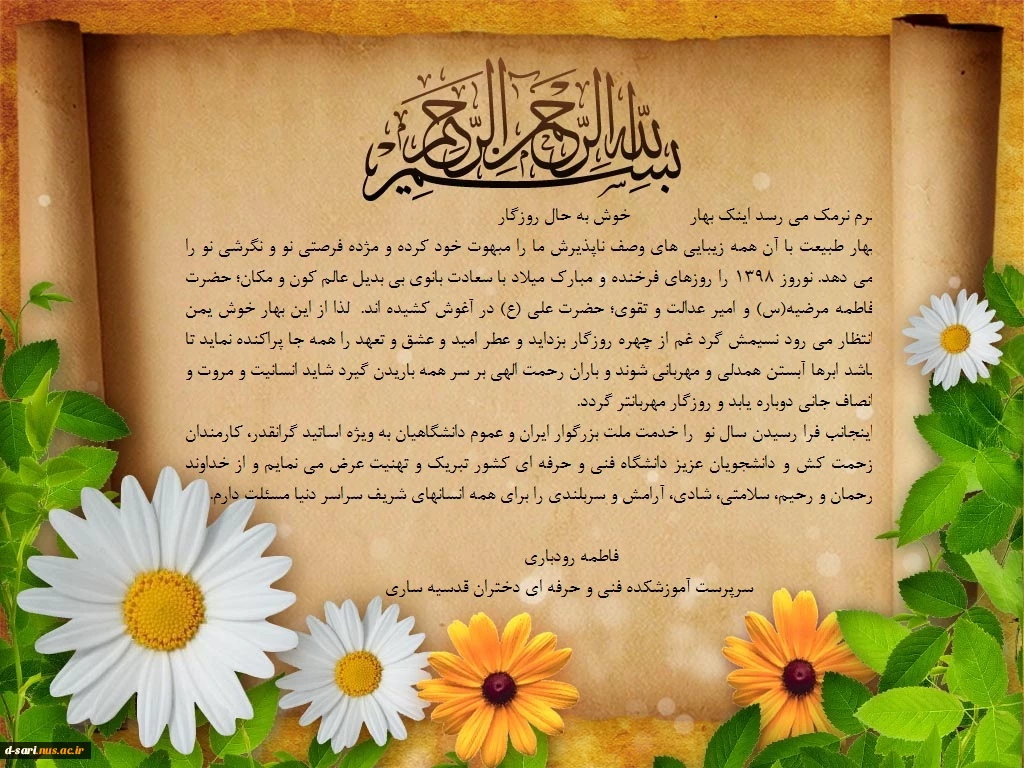 بسم الله الرحمن الرحیم
نرم نرمک می رسد اینک بهار خوش به حال روزگار
بهار طبیعت با آن همه زیبایی های وصف ناپذیرش ما را مبهوت خود کرده و مژده فرصتی نو و نگرشی نو را
می دهد. نوروز ۱۳۹۸ را روزهای فرخنده و مبارک میلاد با سعادت بانوی بی بدیل عالم کون و مکان؛ حضرت
فاطمه مرضیه(س) و امیر عدالت و تقوی؛ حضرت علی (ع) در آغوش کشیده اند. لذا از این بهار خوش یمن
انتظار می رود نسیمش گرد غم از چهره روزگار بزداید و عطر امید و عشق و تعهد را همه جا پراکنده نماید تا
باشد ابرها آبستن همدلی و مهربانی شوند و باران رحمت الهی بر سر همه باریدن گیرد شاید انسانیت و مروت و
انصاف جانی دوباره یابد و روزگار مهربانتر گردد.
اینجانب فرا رسیدن سال نو را خدمت ملت بزرگوار ایران و عموم دانشگاهیان به ویژه اساتید گرانقدر، کارمندان
زحمت کش و دانشجویان عزیز دانشگاه فنی و حرفه ای کشور تبریک و تهنیت عرض می نمایم و از خداوند
رحمان و رحیم، سلامتی، شادی، آرامش و سربلندی را برای همه انسانهای شریف سراسر دنیا مسئلت دارم.
فاطمه رودباری
سرپرست آموزشکده فنی و حرفه ای دختران قدسیه ساری
d-sari.nus.ac.ir